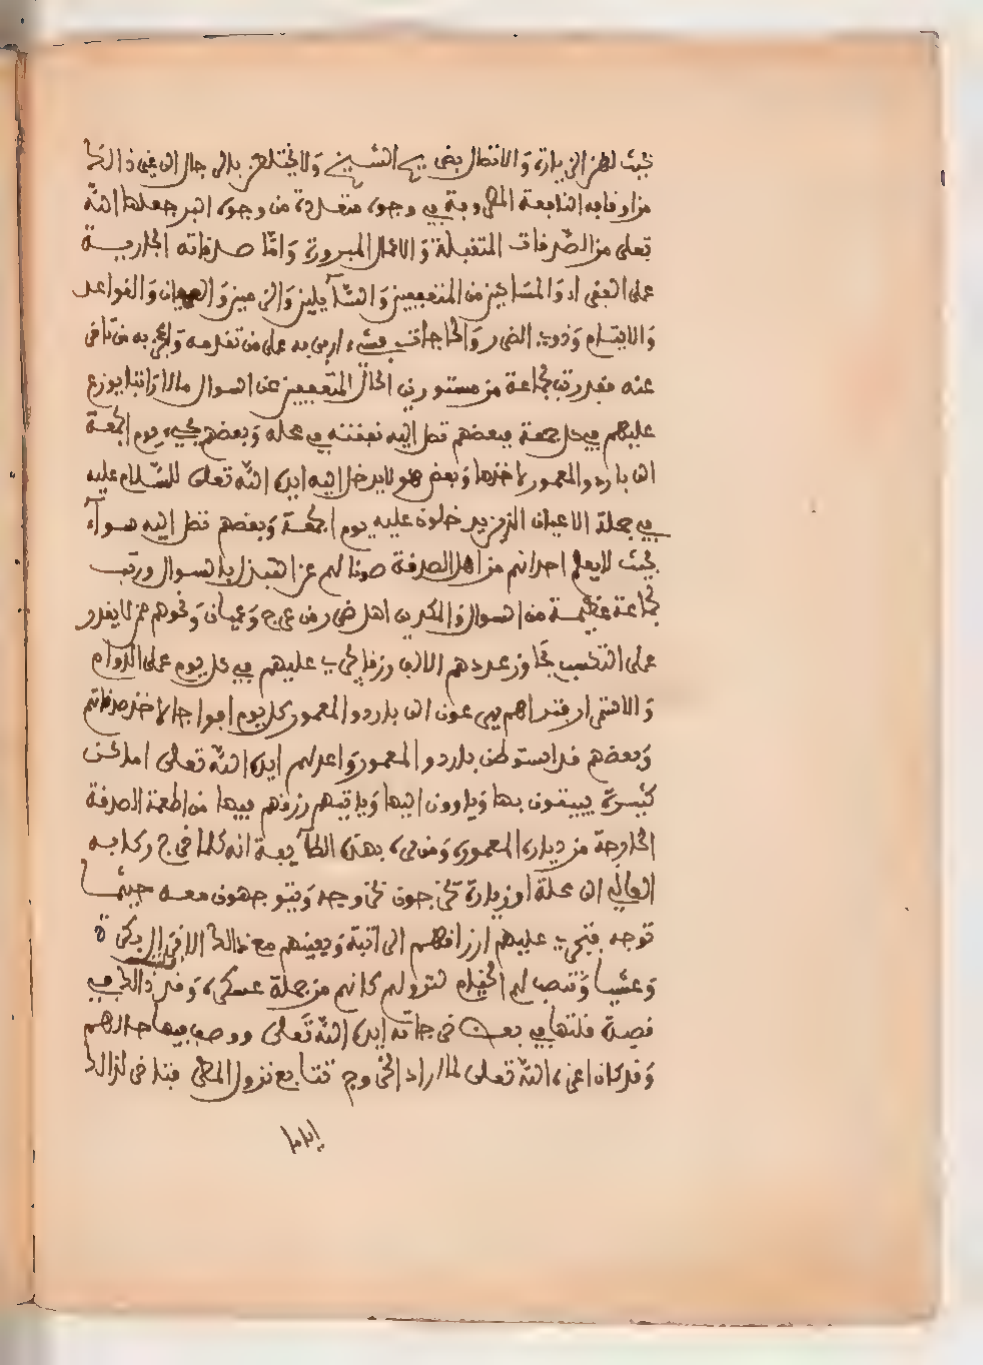 بحيث لهن الزيارة والاتصال بضريح الشيخ ولا يختلطن بالرجال الى غير ذالك
من اوقافه النابعة المصروبة في وجوه متعددة من وجوه البر جعلها الله
تعلى من الصدقات المتقبلة والاعمال المبرورة وأما صدقاته الجارية
على الفقراء والمساكين من المتعففين والسآيلين والزمنين والعميان والقواعد
والايتام وذوي الضرر والحاجات فشيء اربى به على من تقدمه واعجز به من تاخر
عنه فقد رتب لجماعة من مستورين الحال المتعففين عن السوال مالا راتبا يوزع
عليهم في كل جمعة فبعضهم تصل اليه نفقته في محله وبعضهم يجيء يوم الجمعة
الى باردو المعمور لاخذها وبعض هولا يدخل اليه ايده الله تعلى للسلام عليه
في جملة الاعيان الذين يدخلون عليه يوم الجمعة وبعضهم تصل اليه سوآء
بحيث لا يعلم احد انهم من اهل الصدقة صونا لهم عن التبذل بالسوال ورتب
لجماعة عظيمة من السوال والمكدين اهل ضرر من عرج وعميان ونحوهم ممن لا يقدر
على التكسب تجاوز عددهم الالاف رزقا يجري عليهم في كل يوم على الدوام
والاستمرار فتراهم يهرعون الى باردو المعمور كل يوم افواجا لاخذ صدقاتهم
وبعضهم قد استوطن باردو المعمور واعد لهم ايده الله تعلى اماكن
كثيرة يبيتون بها وياوون اليها وياتيهم رزقهم فيها من اطعمة الصدقة
الخارجة من دياره المعمورة ومن بره بهذه الطآيفة انه كلما خرج ركابه
العالي الى محلة او زيارة يخرجون بخروجه ويتوجهون معه حيثما
توجه فيجري عليهم ارزاقهم الراتبة ويعينهم مع ذالك الافراد بكرة
وعشيا وتنصب لهم الخيام لنزولهم كانهم من جملة عسكره وقد ذالك في
قصيدة قلتها في بعض خرجاته ايده الله تعلى ووصف فيها حالهم
وقد كان اعزه الله تعلى لما اراد الخروج تتابع نزول المطر فتاخر لذالك
اياما